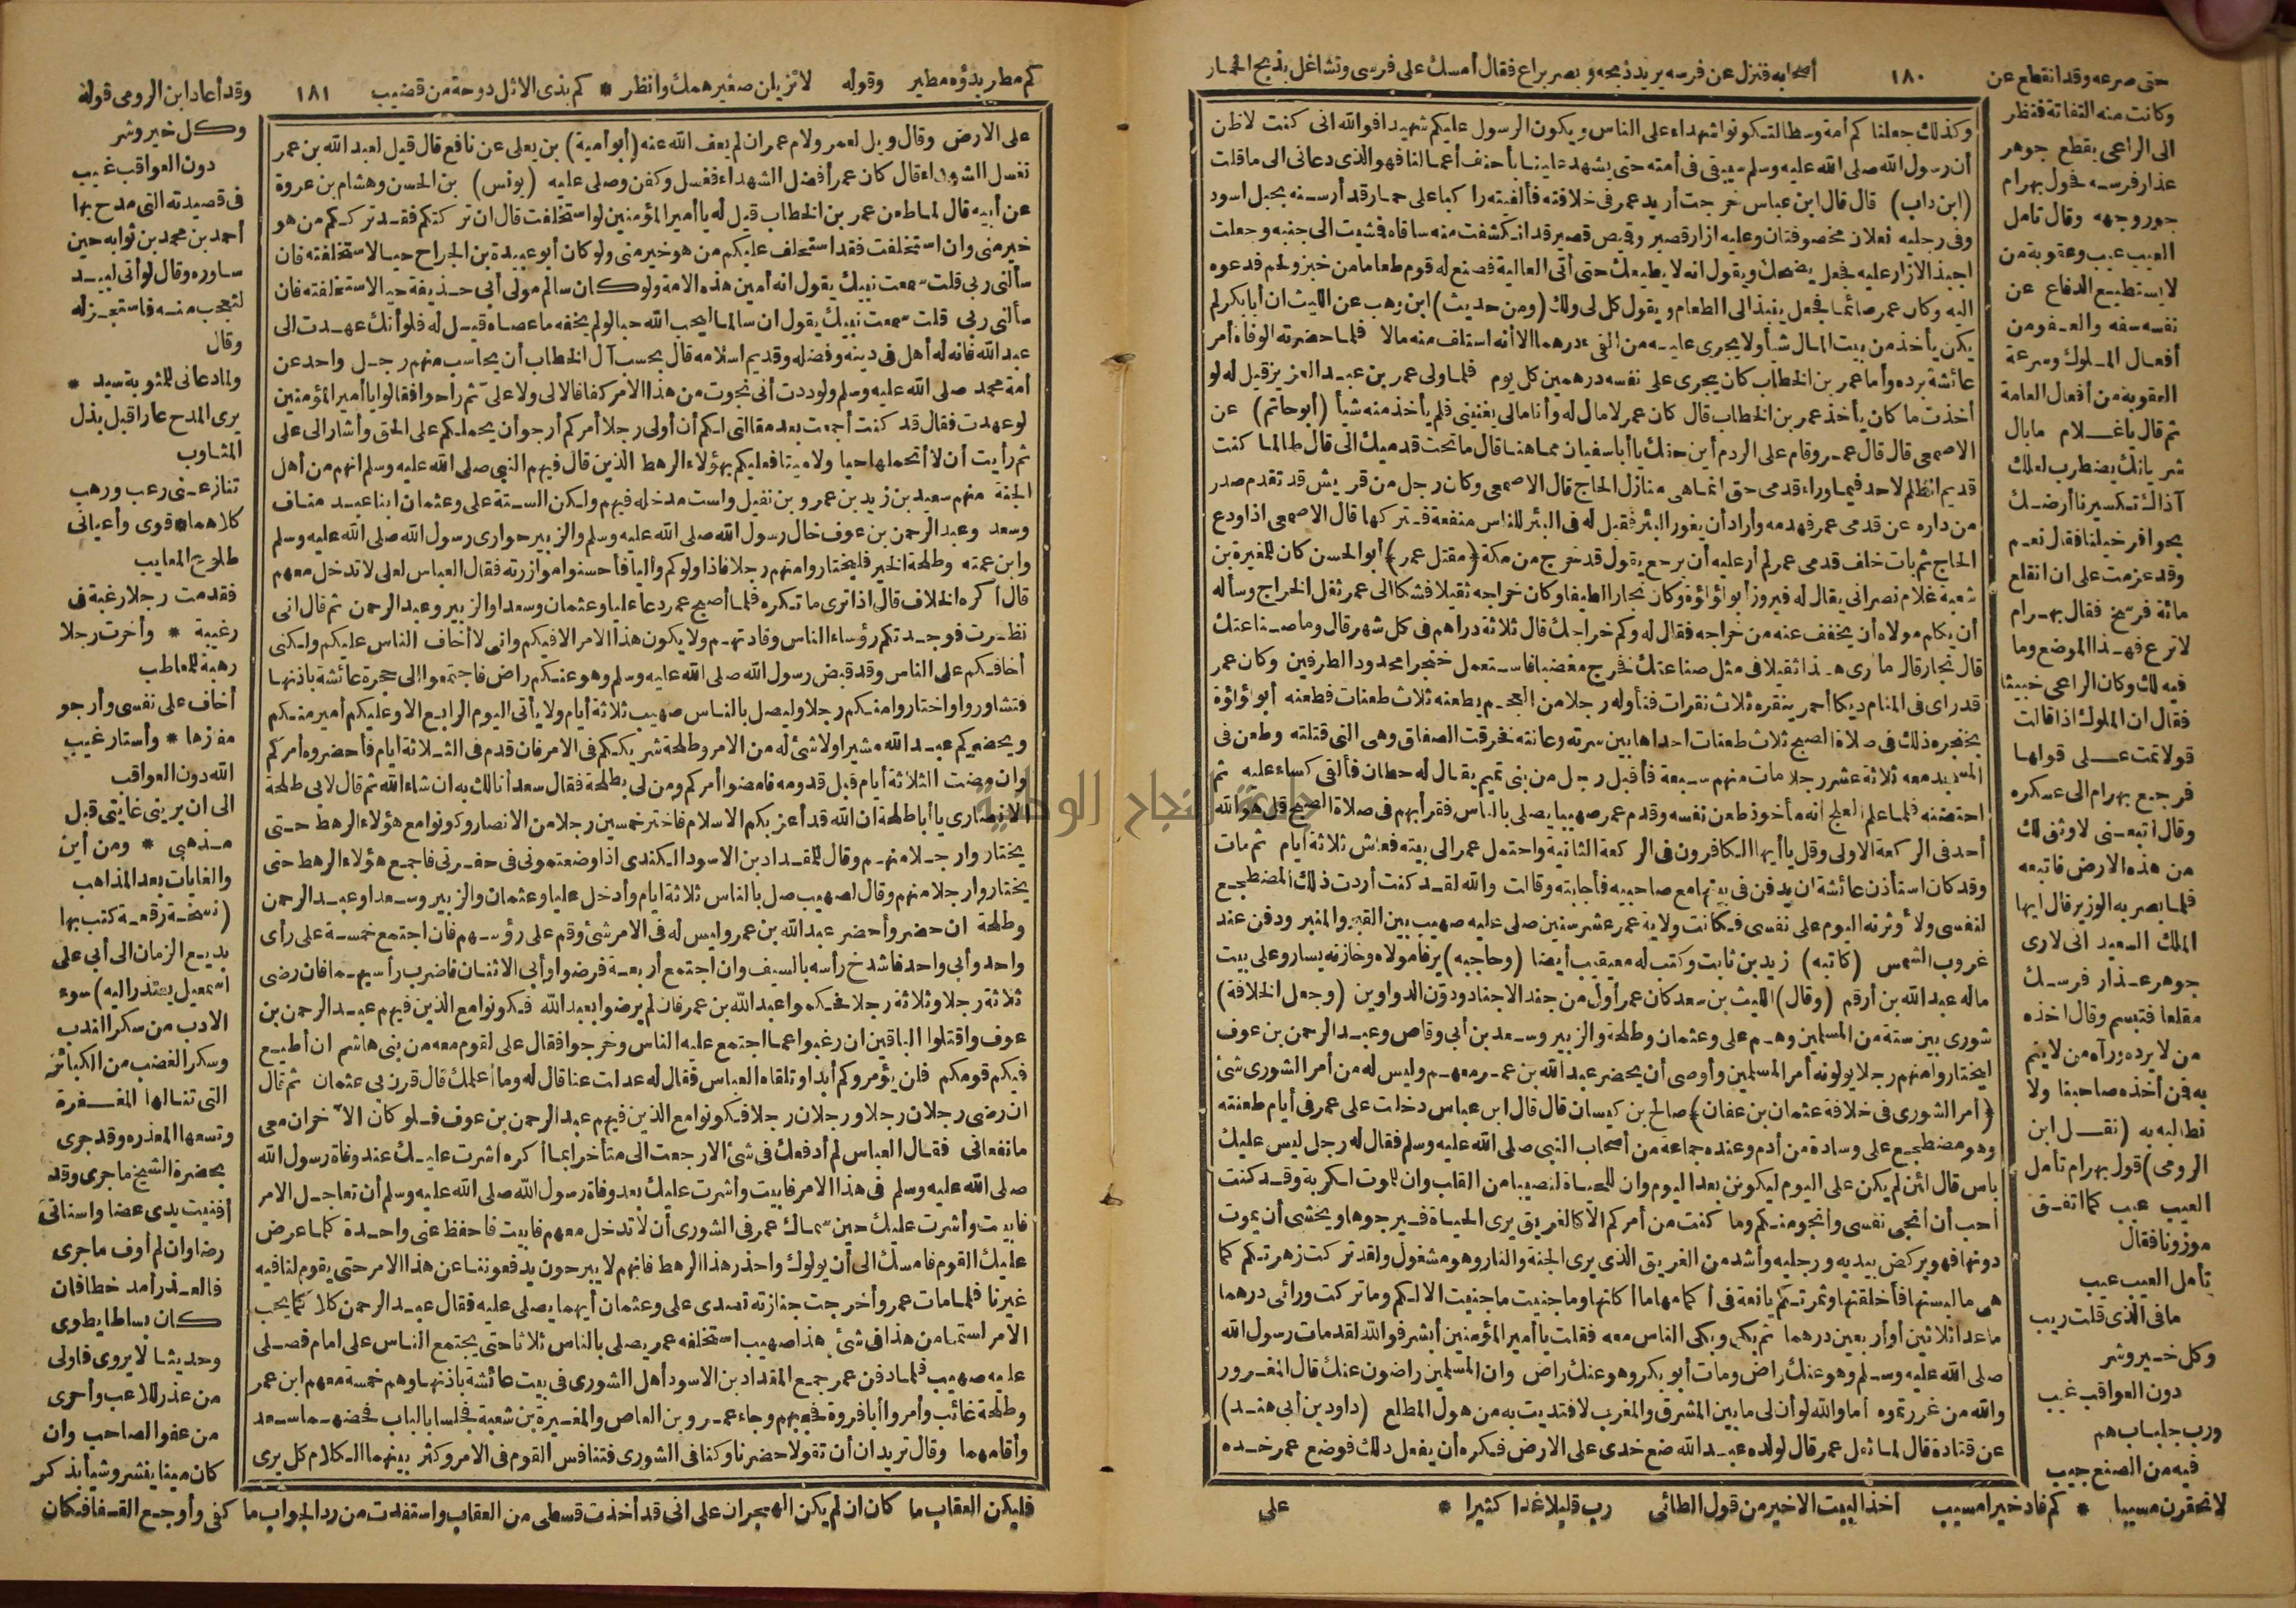 حتى صرعه وقد انقطع عن
١٨٠
أصحابه فنزل عن فرسه يريد ذبحه وبصر براع فقال أمسك على فرسى وتشاغل بذبح الحمار
وكانت منه التفاتة فنظر
الى الراعى يقطع جوهر
عذار فرسه فحول بهرام
جور وجهه وقال تأمل
العيب عيب وعقوبة من
لا يستطيع الدفاع عن
نفسه سفه والعفو من
أفعال الملوك وسرعة
العقوبة من أفعال العامة
ثم قال ياغلام مابال
شريانك يضطرب لعلك
آذاك تكسيرنا أرضك
بحوافر خيلنا فقال نعم
وقد عزمت على ان انقلع
مائة فرسخ فقال بهرام
لا ترع فهذا الموضع وما
فيه لك وكان الراعى خبيثا
فقال ان الملوك اذا قالت
قولا تمت على قولها
فرجع بهرام الى عسكره
وقال اتبعنى لاوثق لك
من هذه الارض فاتبعه
فلما بصر به الوزير قال ايها
الملك السعيد انى لارى
جوهر عذار فرسك
مقلعا فتبسم وقال اخذه
من لا يرده ورآه من لا ينم
به فمن أخذه صاحبنا ولا
نطالبه به (نقل ابن
الرومى) قول بهرام تأمل
العيب عيب كما اتفق
موزونا فقال
تأمل العيب عيب
مافى الذى قلت ريب
وكل خير وشر
دون العواقب غيب
ورب جلباب هم
فيه من الصنع جيب
لا تحقرن مسيبا * كم قاد خيرا مسيب أخذ البيت الاخير من قول الطائى رب قليلا غدا كثيرا *
وكذلك جعلنا كم أمة وسطا لتكونوا شهداء على الناس ويكون الرسول عليكم شهيدا فوالله انى كنت لاظن
أن رسول الله صلى الله عليه وسلم سيبقى فى أمته حتى يشهد علينا بأخف أعمالنا فهو الذى دعانى الى ما قلت
(ابن داب) قال قال ابن عباس خرجت أريد عمر فى خلافته فألفيته راكبا على حمار قد أرسنه بحبل اسود
وفى رجليه نعلان مخصوفتان وعليه ازار قصير وقيص قصير قد انكشفت منه ساقاه فمشيت الى جنبه وجعلت
اجبذ الازار عليه فجعل يضحك ويقول انه لا يطيعك حتى أتى العالية فصنع له قوم طعاما من خبز ولحم فدعوه
اليه وكان عمر صائما فجعل ينبذ الى الطعام ويقول كل لى ولك (ومن حديث) ابن وهب عن الليث ان أبا بكر لم
يكن يأخذ من بيت المال شيأ ولا يجرى عليه من الفىء درهما الا أنه استلف منه مالا فلما حضرته الوفاة أمر
عائشة برده وأما عمر بن الخطاب كان يجرى على نفسه درهمين كل يوم فلما ولى عمر بن عبد العزيز قيل له لو
أخذت ما كان يأخذ عمر بن الخطاب قال كان عمر لا مال له وأنا مالى يغنينى فلم يأخذ منه شيأ (أبو حاتم) عن
الاصمعى قال قال عمر وقام على الردم أين حقك يا أبا سفيان مما هنا قال ما تحت قدميك الى قال طالما كنت
قديم الظلم لا حد فيما وراء قدمى حق انما هى منازل الحاج قال الاصمعى وكان رجل من قريش قد تقدم صدر
من داره عن قدمى عمر فهدمه وأراد أن يغور البئر فقيل له فى البئر للناس منفعة فتركها قال الاصمعى اذا ودع
الحاج ثم بات خلف قدمى عمر لم أر عليه أن يرجع يقول قد خرج من مكة ﴿مقتل عمر﴾ أبو الحسن كان للمغيرة بن
شعبة غلام نصرانى يقال له فيروز أبو لؤلؤة وكان نجارا لطيفا وكان خراجه ثقيلا فشكا الى عمر ثقل الخراج وسأله
أن يكلم مولاه أن يخفف عنه من خراجه فقال له وكم خراجك قال ثلاثة دراهم فى كل شهر قال وما صناعتك
قال نجار قال ما أرى هذا ثقيلا فى مثل صناعتك فخرج مغضبا فاستعمل خنجرا محدود الطرفين وكان عمر
قد رأى فى المنام ديكا أحمر ينقره ثلاث نقرات فتأوله رجلا من العجم يطعنه ثلاث طعنات فطعنه أبو لؤلؤة
بخنجره ذلك فى صلاة الصبح ثلاث طعنات احداها بين سرته وعانته فخرقت الصفاق وهى التى قتلته وطعن فى
المسجد معه ثلاثة عشر رجلا مات منهم سبعة فأقبل رجل من بنى تميم يقال له حطان فألقى كساء عليه ثم
احتضنه فلما علم العلج أنه مأخوذ طعن نفسه وقدم عمر صهيبا يصلى بالناس فقرأ بهم فى صلاة الصبح قل هو الله
أحد فى الركعة الاولى وقل يا أيها الكافرون فى الركعة الثانية واحتمل عمر الى بيته فعاش ثلاثة أيام ثم مات
وقد كان استأذن عائشة ان يدفن فى بيتها مع صاحبيه فأجابته وقالت والله لقد كنت أردت ذلك المضطجع
لنفسى ولأوثرنه اليوم على نفسى فكانت ولاية عمر عشر سنين صلى عليه صهيب بين القبر والمنبر ودفن عند
غروب الشمس (كاتبه) زيد بن ثابت وكتب له معيقيب أيضا (وحاجبه) يرفا مولاه وخازنه يسار وعلى بيت
ماله عبد الله بن أرقم (وقال) الليث بن سعد كان عمر أول من جند الاجناد ودون الدواوين (وجعل الخلافة)
شورى بين ستة من المسلمين وهم على وعثمان وطلحة والزبير وسعد بن أبى وقاص وعبد الرحمن بن عوف
ليختاروا منهم رجلا يولونه أمر المسلمين وأوصى أن يحضر عبد الله بن عمر معهم وليس له من أمر الشورى شئ
﴿أمر الشورى فى خلافة عثمان بن عفان﴾ صالح بن كيسان قال قال ابن عباس دخلت على عمر فى أيام طعنته
وهو مضطجع على وسادة من أدم وعنده جماعة من أصحاب النبى صلى الله عليه وسلم فقال له رجل ليس عليك
باس قال لئن لم يكن على اليوم ليكونن بعد اليوم وان للحياة لنصيبا من القلب وان للموت لكربة وقد كنت
أحب أن أنجى نفسى وأنجو منكم وما كنت من أمركم الا كالغريق يرى الحياة فيرجوها ويخشى أن يموت
دونها فهو يركض بيديه ورجليه وأشد من الغريق الذى يرى الجنة والنار وهو مشغول ولقد تركت زهرتكم كما
هى ما لبستها فأخلقتها وثمرتكم يانعة فى أكمامها ما أكلتها وما جنيت ما جنيت الا لكم وما تركت ورائى درهما
ماعدا ثلاثين أو أربعين درهما ثم بكى وبكى الناس معه فقلت يا أمير المؤمنين أبشر فوالله لقد مات رسول الله
صلى الله عليه وسلم وهو عنك راض ومات أبو بكر وهو عنك راض وان المسلمين راضون عنك قال المغرور
والله من غررتموه أما والله لو أن لى ما بين المشرق والمغرب لافتديت به من هول المطلع (داود بن أبى هند)
عن قتادة قال لما ثقل عمر قال لولده عبد الله ضع خدى على الارض فكره أن يفعل ذلك فوضع عمر خده
على
كم مطر بدؤه مطير وقوله لا تزيلن صغير همك وانظر * كم بذى الاثل دوحة من قضيب
١٨١
وقد أعاد ابن الرومى قوله
على الارض وقال ويل لعمر ولام عمر ان لم يعف الله عنه (أبو أمية) بن يعلى عن نافع قال قيل لعبد الله بن عمر
تغسل الشهداء قال كان عمر أفضل الشهداء فغسل وكفن وصلى عليه (يونس) بن الحسن وهشام بن عروة
عن أبيه قال لما طعن عمر بن الخطاب قيل له يا أمير المؤمنين لو استخلفت قال ان تركتكم فقد ترككم من هو
خير منى وان استخلفت فقد استخلف عليكم من هو خير منى ولو كان أبو عبيدة بن الجراح حيا لاستخلفته فان
سألنى ربى قلت سمعت نبيك يقول انه أمين هذه الامة ولو كان سالم مولى أبى حذيفة حيا لاستخلفته فان
سألنى ربى قلت سمعت نبيك يقول ان سالما ليحب الله حبا لو لم يخفه ما عصاه قيل له فلو أنك عهدت الى
عبد الله فانه له أهل فى دينه وفضله وقديم اسلامه قال بحسب آل الخطاب أن يحاسب منهم رجل واحد عن
أمة محمد صلى الله عليه وسلم ولوددت أنى نجوت من هذا الامر كفافا لا لى ولا على ثم راحوا فقالوا يا أمير المؤمنين
لو عهدت فقال قد كنت أجمعت بعد مقالتى لكم أن أولى رجلا أمركم أرجو أن يحملكم على الحق وأشار الى على
ثم رأيت أن لا أتحملها حيا ولا ميتا فعليكم بهؤلاء الرهط الذين قال فيهم النبى صلى الله عليه وسلم انهم من أهل
الجنة منهم سعيد بن زيد بن عمرو بن نفيل ولست مدخله فيهم ولكن الستة على وعثمان ابنا عبد مناف
وسعد وعبد الرحمن بن عوف خال رسول الله صلى الله عليه وسلم والزبير حوارى رسول الله صلى الله عليه وسلم
وابن عمته وطلحة الخير فليختاروا منهم رجلا فاذا ولوكم واليا فأحسنوا موازرته فقال العباس لعلى لا تدخل معهم
قال أكره الخلاف قال اذا ترى ما تكره فلما أصبح عمر دعا عليا وعثمان وسعدا والزبير وعبد الرحمن ثم قال انى
نظرت فوجدتكم رؤساء الناس وقادتهم ولا يكون هذا الامر الا فيكم وانى لا أخاف الناس عليكم ولكنى
أخافكم على الناس وقد قبض رسول الله صلى الله عليه وسلم وهو عنكم راض فاجتمعوا الى حجرة عائشة باذنها
فتشاوروا واختاروا منكم رجلا وليصل بالناس صهيب ثلاثة أيام ولا يأتى اليوم الرابع الا وعليكم أمير منكم
ويحضركم عبد الله مشيرا ولا شئ له من الامر وطلحة شريككم فى الامر فان قدم فى الثلاثة أيام فأحضروه أمركم
وان مضت الثلاثة أيام قبل قدومه فامضوا أمركم ومن لى بطلحة فقال سعد أنا لك به ان شاء الله ثم قال لابى طلحة
الانصارى يا أبا طلحة ان الله قد أعز بكم الاسلام فاختر خمسين رجلا من الانصار وكونوا مع هؤلاء الرهط حتى
يختاروا رجلا منهم وقال للمقداد بن الاسود الكندى اذا وضعتمونى فى حفرتى فاجمع هؤلاء الرهط حتى
يختاروا رجلا منهم وقال لصهيب صل بالناس ثلاثة أيام وأدخل عليا وعثمان والزبير وسعدا وعبد الرحمن
وطلحة ان حضر وأحضر عبد الله بن عمر وليس له فى الامر شئ وقم على رؤسهم فان اجتمع خمسة على رأى
واحد وأبى واحد فاشدخ رأسه بالسيف وان اجتمع أربعة فرضوا وأبى الاثنان فاضرب رأسيهما فان رضى
ثلاثة رجلا وثلاثة رجلا فحكموا عبد الله بن عمر فان لم يرضوا بعبد الله فكونوا مع الذين فيهم عبد الرحمن بن
عوف واقتلوا الباقين ان رغبوا عما اجتمع عليه الناس وخرجوا فقال على لقوم معه من بنى هاشم ان أطيع
فيكم قومكم فلن يؤمروكم أبدا وتلقاه العباس فقال له عدلت عنا قال له وما أعلمك قال قرن بى عثمان ثم قال
ان رضى رجلان رجلا ورجلان رجلا فكونوا مع الذين فيهم عبد الرحمن بن عوف فلو كان الآخران معى
ما نفعانى فقال العباس لم أدفعك فى شئ الا رجعت الى متأخرا بما أكره اشرت عليك عند وفاة رسول الله
صلى الله عليه وسلم فى هذا الامر فابيت وأشرت عليك بعد وفاة رسول الله صلى الله عليه وسلم أن تعاجل الامر
فابيت وأشرت عليك حين سماك عمر فى الشورى أن لا تدخل معهم فابيت فاحفظ عنى واحدة كلما عرض
عليك القوم فامسك الى أن يولوك واحذر هذا الرهط فانهم لا يبرحون يدفعوننا عن هذا الامر حتى يقوم لنا فيه
غيرنا فلما مات عمر وأخرجت جنازته تصدى على وعثمان أيهما يصلى عليه فقال عبد الرحمن كلاكما يحب
الامر لستما من هذا فى شئ هذا صهيب استخلفه عمر يصلى بالناس ثلاثا حتى يجتمع الناس على امام فصلى
عليه صهيب فلما دفن عمر جمع المقداد بن الاسود أهل الشورى فى بيت عائشة باذنها وهم خمسة معهم ابن عمر
وطلحة غائب وأمروا أبا فروة فحجبهم وجاء عمرو بن العاص والمغيرة بن شعبة فجلسا بالباب فحصبهما سعد
وأقامهما وقال تريدان أن تقولا حضرنا وكنا فى الشورى فتنافس القوم فى الامر وكثر بينهما الكلام كل يرى
وكل خير وشر
دون العواقب غيب
فى قصيدته التى مدح بها
أحمد بن محمد بن ثوابه حين
ساوره وقال لو أنى لبيد
لتعجب منه
وقال
ولما دعانى للمثوبة سيد *
يرى المدح عارا قبل بذل
المثاوب
تنازعنى رعب ورهب
كلاهما * قوى وأعيانى
طلوع المعايب
فقدمت رجلا رغبة فى
رغيبة * وأخرت رجلا
رهبة للمعاطب
أخاف على نفسى وأرجو
مفازها * وأستار غيب
الله دون العواقب
الى ان يرينى غايتى قبل
مذهبى * ومن أين
والغايات بعد المذاهب
(نسخة رقعة كتب بها
بديع الزمان الى أبى على
اسمعيل يعتذر اليه) سوء
الادب من سكر الندب
وسكر الغضب من الكبائر
التى تنالها المغفرة
وتسعها المعذرة وقد جرى
بحضرة الشيخ ماجرى وقد
أفنيت يدى عضا واسنانى
رضا وان لم أوف ماجرى
فالعذر أمد خطا فان
كان بساطا يطوى
وحديثا لا يروى فاولى
من عذر اللاعب وأحرى
من عفو الصاحب وان
كان ميتا ينشر وشيأ يذكر
فليكن العقاب ما كان ان لم يكن الهجران على انى قد أخذت قسطى من العقاب واستفدت من رد الجواب ما كفى وأوجع القفا فكان
جامعة النجاح الوطنية